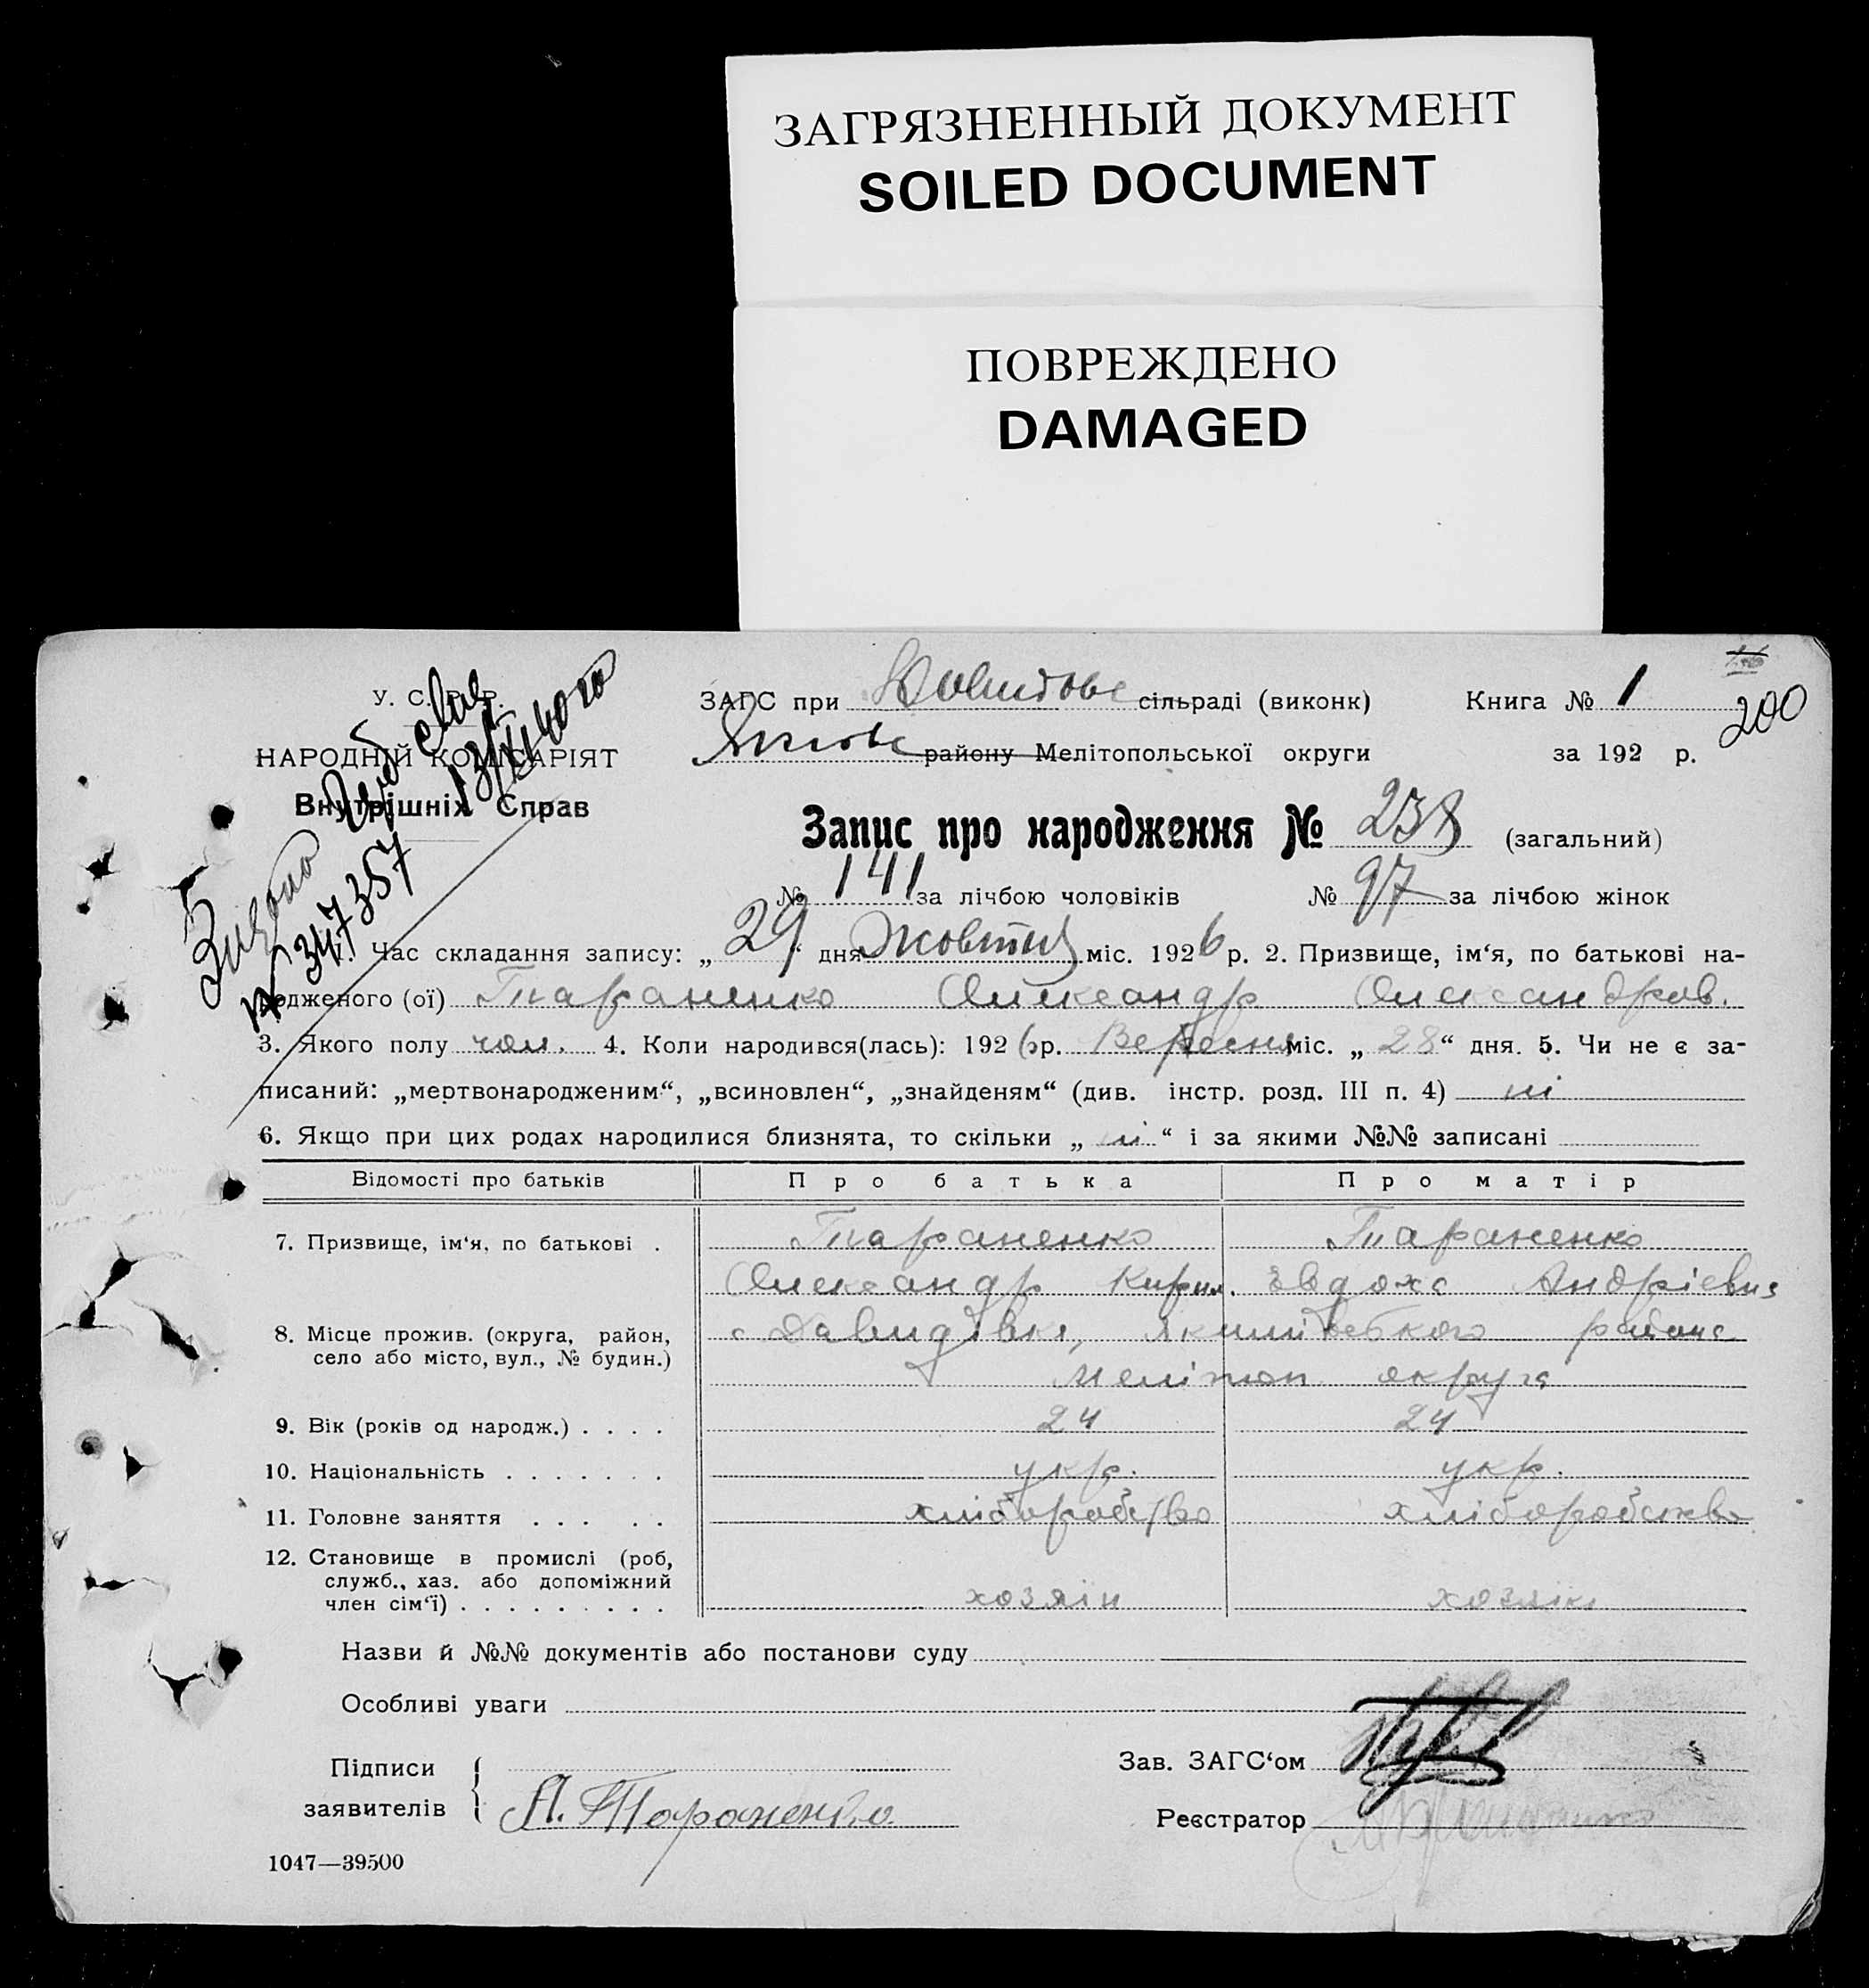 ЗАГРЯЗНЕННЫЙ ДОКУМЕНТ
SOILED DOCUMENT
ПОВРЕЖДЕНО
DAMAGED
У. С. Р. Р.
НАРОДНІЙ КОМІСАРІЯТ
Внутрішніх Справ
№ 347357
13/XI 40 го
ЗАГС при сільраді (виконк)
району Мелітопольської округи
Книга № 1
200
за 192 р.
Запис про народження № 238 (загальний)
№ 141 за лічбою чоловіків № 97 за лічбою жінок
1. Час складання запису: „29“ дня Жовтня міс. 1926 р. 2. Призвище, ім‘я, по батькові на-
родженого (ої) Тараненко Олександр Олександров.
3. Якого полу чол. 4. Коли народився(лась): 1926 р. Вересня міс. „28“ дня. 5. Чи не є за-
писаний: „мертвонародженим“, „всиновлен“, „знайденям“ (див. інстр. розд. III п. 4) ні
6. Якщо при цих родах народилися близнята, то скільки „ні“ і за якими №№ записані
Відомості про батьків Про батька Про матір
7. Призвище, ім‘я, по батькові . Тараненко Тараненко
Олександр Кирил. Евдоха Андріевна
8. Місце прожив. (округа, район, село або місто, вул., № будин.) с Давидівка, Якимівського района
Меліտоп округа
9. Вік (років од народж.) . . . . 24 24
10. Національність . . . . . . . укр. укр.
11. Головне заняття . . . . . хліборобство хліборобство
12. Становище в промислі (роб, служб., хаз. або допоміжний член сім‘ї) . . . . . . . . . хозяін хозяін
Назви й №№ документів або постанови суду
Особливі уваги
Підписи
заявителів А. Тараненко
Зав. ЗАГС‘ом
Реєстратор
1047—39500